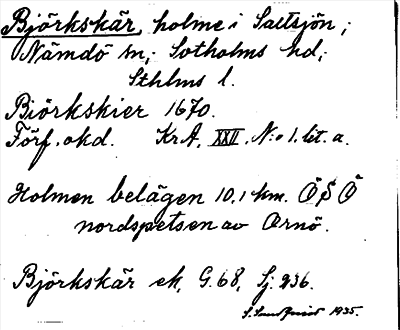 Björkskär, holme i Saltsjön;
Nämdö sn; Sotholms hd;
Sthlms l.
Biörkskier 1670.
Förf. okd. KrA, XXII, N:o 1. lit. a.
Holmen belägen 10,1 km. Ö S Ö
nordspetsen av Ornö.
Björkskär ek, G.68, Sj. 936.
1935.